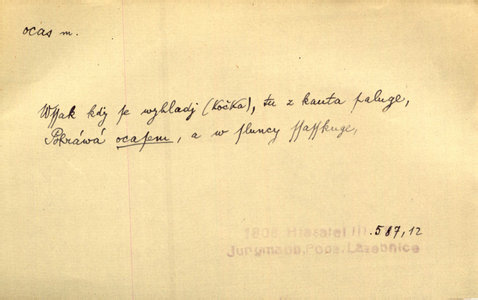 ocas m.
Wssak kdy se wyhladj (kočka), tu z kauta paluge,
Pohráwá ocasem, a w sluncy ssasskuge,
1808 Hlasatel III .587,12
Jungmann, Poos. Lazebnice